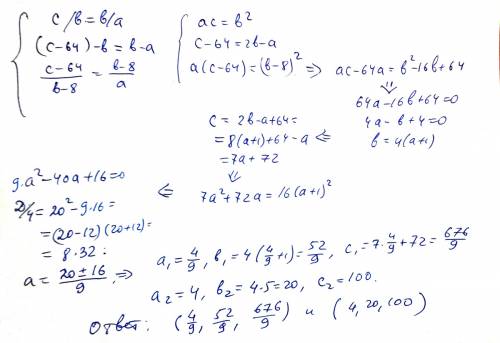 c/b = b/a
(c-64)-b = b-a
(c-64)/(b-8) = (b-8)/a
ac = b²
c-64 = 2b-a
a(c-64) = (b-8)² ⇒ ac-64a = b²-16b+64
⇓
64a-16b+64=0
4a-b+4=0
b=4(a+1)
⇐
c = 2b-a+64=
= 8(a+1)+64-a
= 7a+72
⇓
7a²+72a=16(a+1)²
⇐
9·a²-40a+16=0
D/4 = 20²-9·16 =
= (20-12)(20+12)=
= 8·32 :
a = (20±16)/9 ⇒ a₁ = 4/9, b₁ = 4(4/9+1) = 52/9, c₁ = 7·4/9+72 = 676/9
a₂ = 4, b₂ = 4·5=20, c₂=100.
Ответ: (4/9, 52/9, 676/9) и (4, 20, 100)